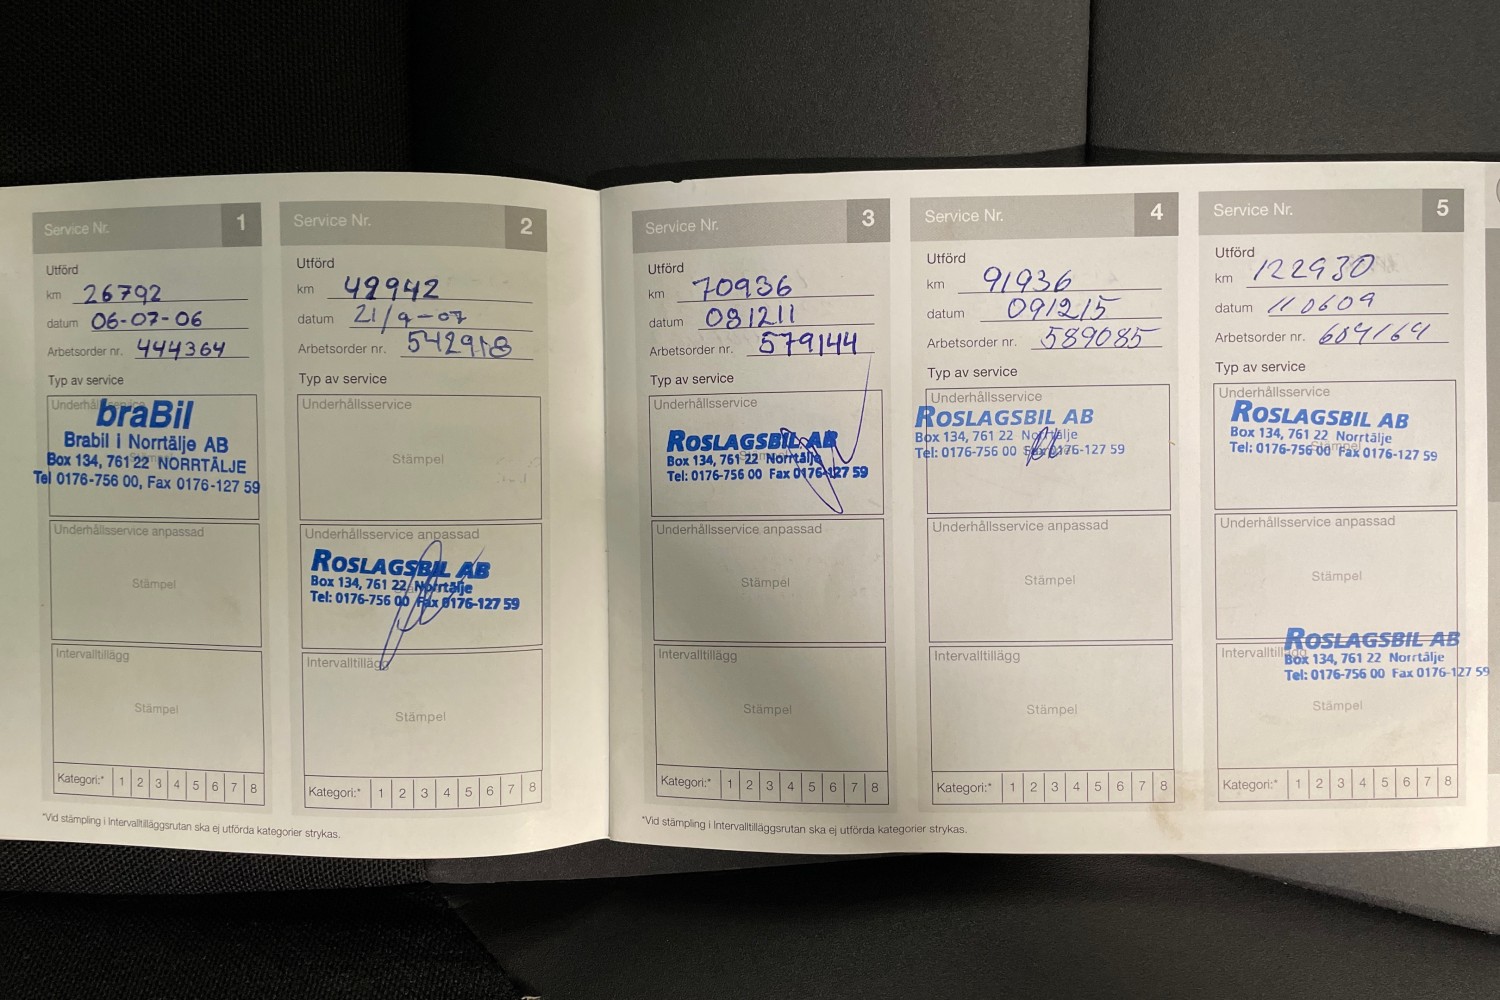 Service Nr. 1
Utförd
km 26792
datum 06-07-06
Arbetsorder nr. 444364
Typ av service
Underhållsservice
braBil
Brabil i Norrtälje AB
Box 134, 761 22 NORRTÄLJE
Tel 0176-756 00, Fax 0176-127 59
Underhållsservice anpassad
Stämpel
Intervalltillägg
Stämpel
Kategori:* 1 2 3 4 5 6 7 8
*Vid stämpling i Intervalltilläggsrutan ska ej utförda kategorier strykas.
Service Nr. 2
Utförd
km 49942
datum 21/9-07
Arbetsorder nr. 542918
Typ av service
Underhållsservice
Stämpel
Underhållsservice anpassad
ROSLAGSBIL AB
Box 134, 761 22 Norrtälje
Tel: 0176-756 00 Fax 0176-127 59
Intervalltillägg
Stämpel
Kategori:* 1 2 3 4 5 6 7 8
Service Nr. 3
Utförd
km 70936
datum 081211
Arbetsorder nr. 579144
Typ av service
Underhållsservice
ROSLAGSBIL AB
Box 134, 761 22 Norrtälje
Tel: 0176-756 00 Fax 0176-127 59
Underhållsservice anpassad
Stämpel
Intervalltillägg
Stämpel
Kategori:* 1 2 3 4 5 6 7 8
*Vid stämpling i Intervalltilläggsrutan ska ej utförda kategorier strykas.
Service Nr. 4
Utförd
km 91936
datum 091215
Arbetsorder nr. 589085
Typ av service
Underhållsservice
ROSLAGSBIL AB
Box 134, 761 22 Norrtälje
Tel: 0176-756 00 Fax 0176-127 59
Underhållsservice anpassad
Stämpel
Intervalltillägg
Stämpel
Kategori:* 1 2 3 4 5 6 7 8
Service Nr. 5
Utförd
km 122930
datum 110609
Arbetsorder nr.
Typ av service
Underhållsservice
Stämpel
ROSLAGSBIL AB
Box 134, 761 22 Norrtälje
Tel: 0176-756 00 Fax 0176-127 59
Underhållsservice anpassad
Stämpel
Intervalltillägg
ROSLAGSBIL AB
Box 134, 761 22 Norrtälje
Tel: 0176-756 00 Fax 0176-127 59
Stämpel
Kategori:* 1 2 3 4 5 6 7 8